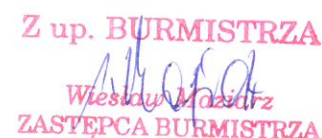 Z up. BURMISTRZA
Wiesław Maziarz
ZASTĘPCA BURMISTRZA